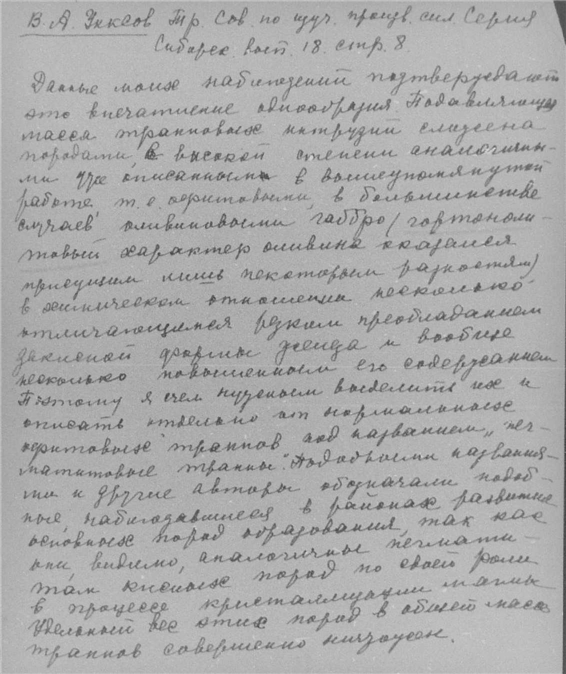 В. А. Тр. Сов. по изуч. произв. сил. Серия
Сибирск. вып. 18. стр. 8.
Данные моих наблюдений подтверждают
это впечатление однообразия Подавляющая
масса трапповых интрузий сложена
породами, в высокой степени аналогичны-
ми уже описанным в вышеупомянутой
работе т. е. офитовыми, в большинстве
случаев оливиновыми габбро (гортоноли-
товый характер оливина оказался
присущим лишь некоторым разностям)
в химическом отношении несколько
отличающимся резким преобладанием
закисной формы железа и вообще
несколько повышенным его содержанием
Поэтому я счел нужным выделить их и
описать отдельно от нормальных
офитовых траппов под названием „пег-
матитовые траппы". Подобными названия-
ми и другие авторы обозначали подоб-
ные, наблюдавшиеся в районах развития
основных пород образования, так как
они, видимо, аналогичные пегмати-
там кислых пород по своей роли
в процессе кристаллизации магмы
Удельный вес этих пород в общей массе
траппов совершенно ничтожен.